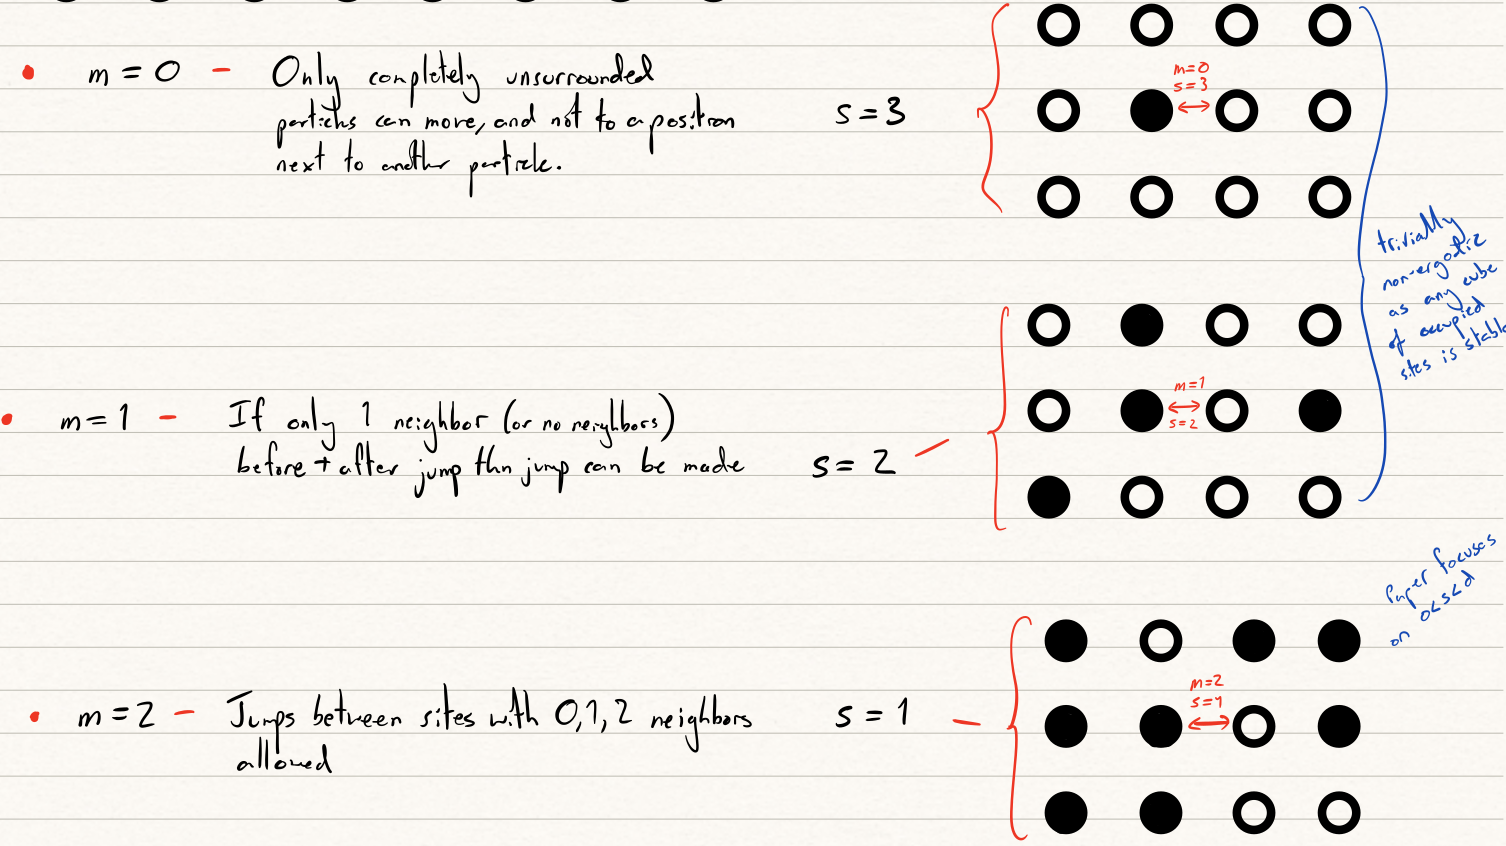 m = 0 - Only completely unsurrounded
particles can move, and not to a position
next to another particle.
s = 3
m=0
s=3
trivially
non-ergodic
as any cube
of occupied
sites is stable
m = 1 - If only 1 neighbor (or no neighbors)
before + after jump then jump can be made
s = 2
m=1
s=2
Paper focuses
on 0<s<d
m = 2 - Jumps between sites with 0,1,2 neighbors
allowed
s = 1
m=2
s=1